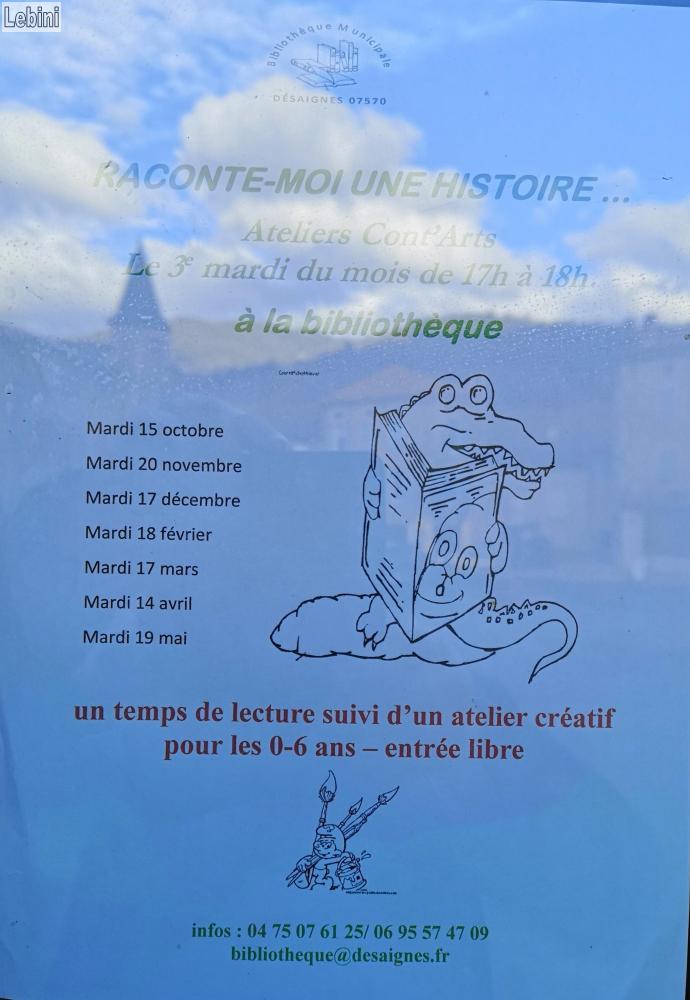 Lebini
Bibliothèque Municipale
DÉSAIGNES 07570
RACONTE-MOI UNE HISTOIRE ...
Ateliers Cont'Arts
Le 3e mardi du mois de 17h à 18h.
à la bibliothèque
Mardi 15 octobre
Mardi 20 novembre
Mardi 17 décembre
Mardi 18 février
Mardi 17 mars
Mardi 14 avril
Mardi 19 mai
un temps de lecture suivi d'un atelier créatif
pour les 0-6 ans – entrée libre
infos : 04 75 07 61 25/ 06 95 57 47 09
bibliotheque@desaignes.fr